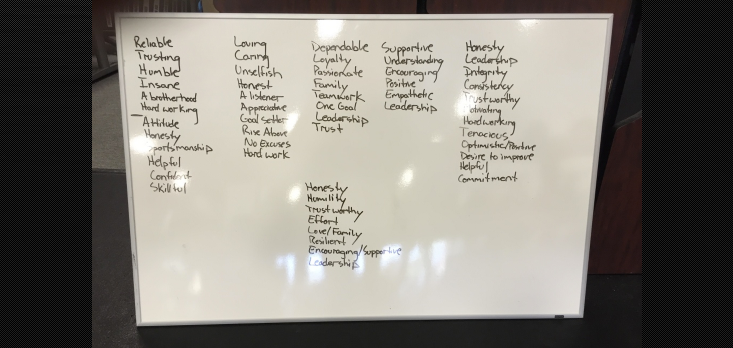 Reliable
Trusting
Humble
Insane
A brotherhood
Hard working
Attitude
Honesty
Sportsmanship
Helpful
Confident
Skillful
Loving
Caring
Unselfish
Honest
A listener
Appreciative
Goal setter
Rise Above
No Excuses
Hard work
Dependable
Loyalty
Passionate
Family
Teamwork
One Goal
Leadership
Trust
Supportive
Understanding
Encouraging
Positive
Empathetic
Leadership
Honesty
Leadership
Integrity
Consistency
Trustworthy
Motivating
Hardworking
Tenacious
Optimistic/Positive
Desire to improve
Helpful
Commitment
Honesty
Humility
Trustworthy
Effort
Love/Family
Resilient
Encouraging/Supportive
Leadership